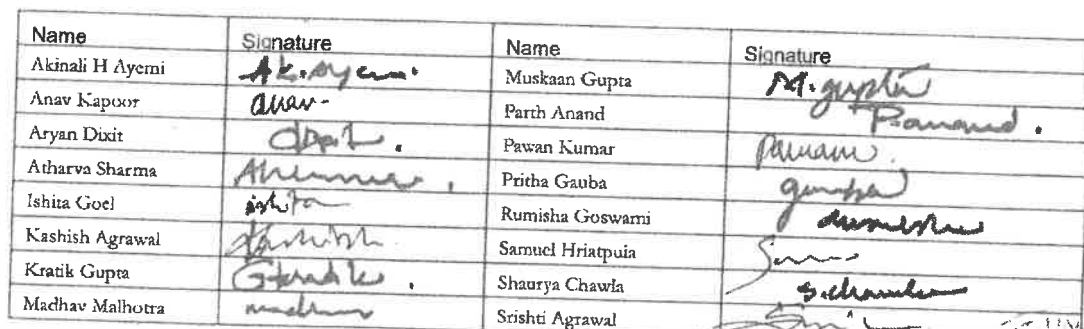 Name Signature Name Signature
Akinali H Ayemi Ak. Ayemi Muskaan Gupta M. gupta
Anav Kapoor anav Parth Anand P. anand.
Aryan Dixit Parwan Kumar
Atharva Sharma Pritha Gauba
Ishita Goel ishita Rumisha Goswami
Kashish Agrawal Kashish Samuel Hriatpuia
Kratik Gupta Shaurya Chawla S. chawla
Madhav Malhotra Srishti Agrawal